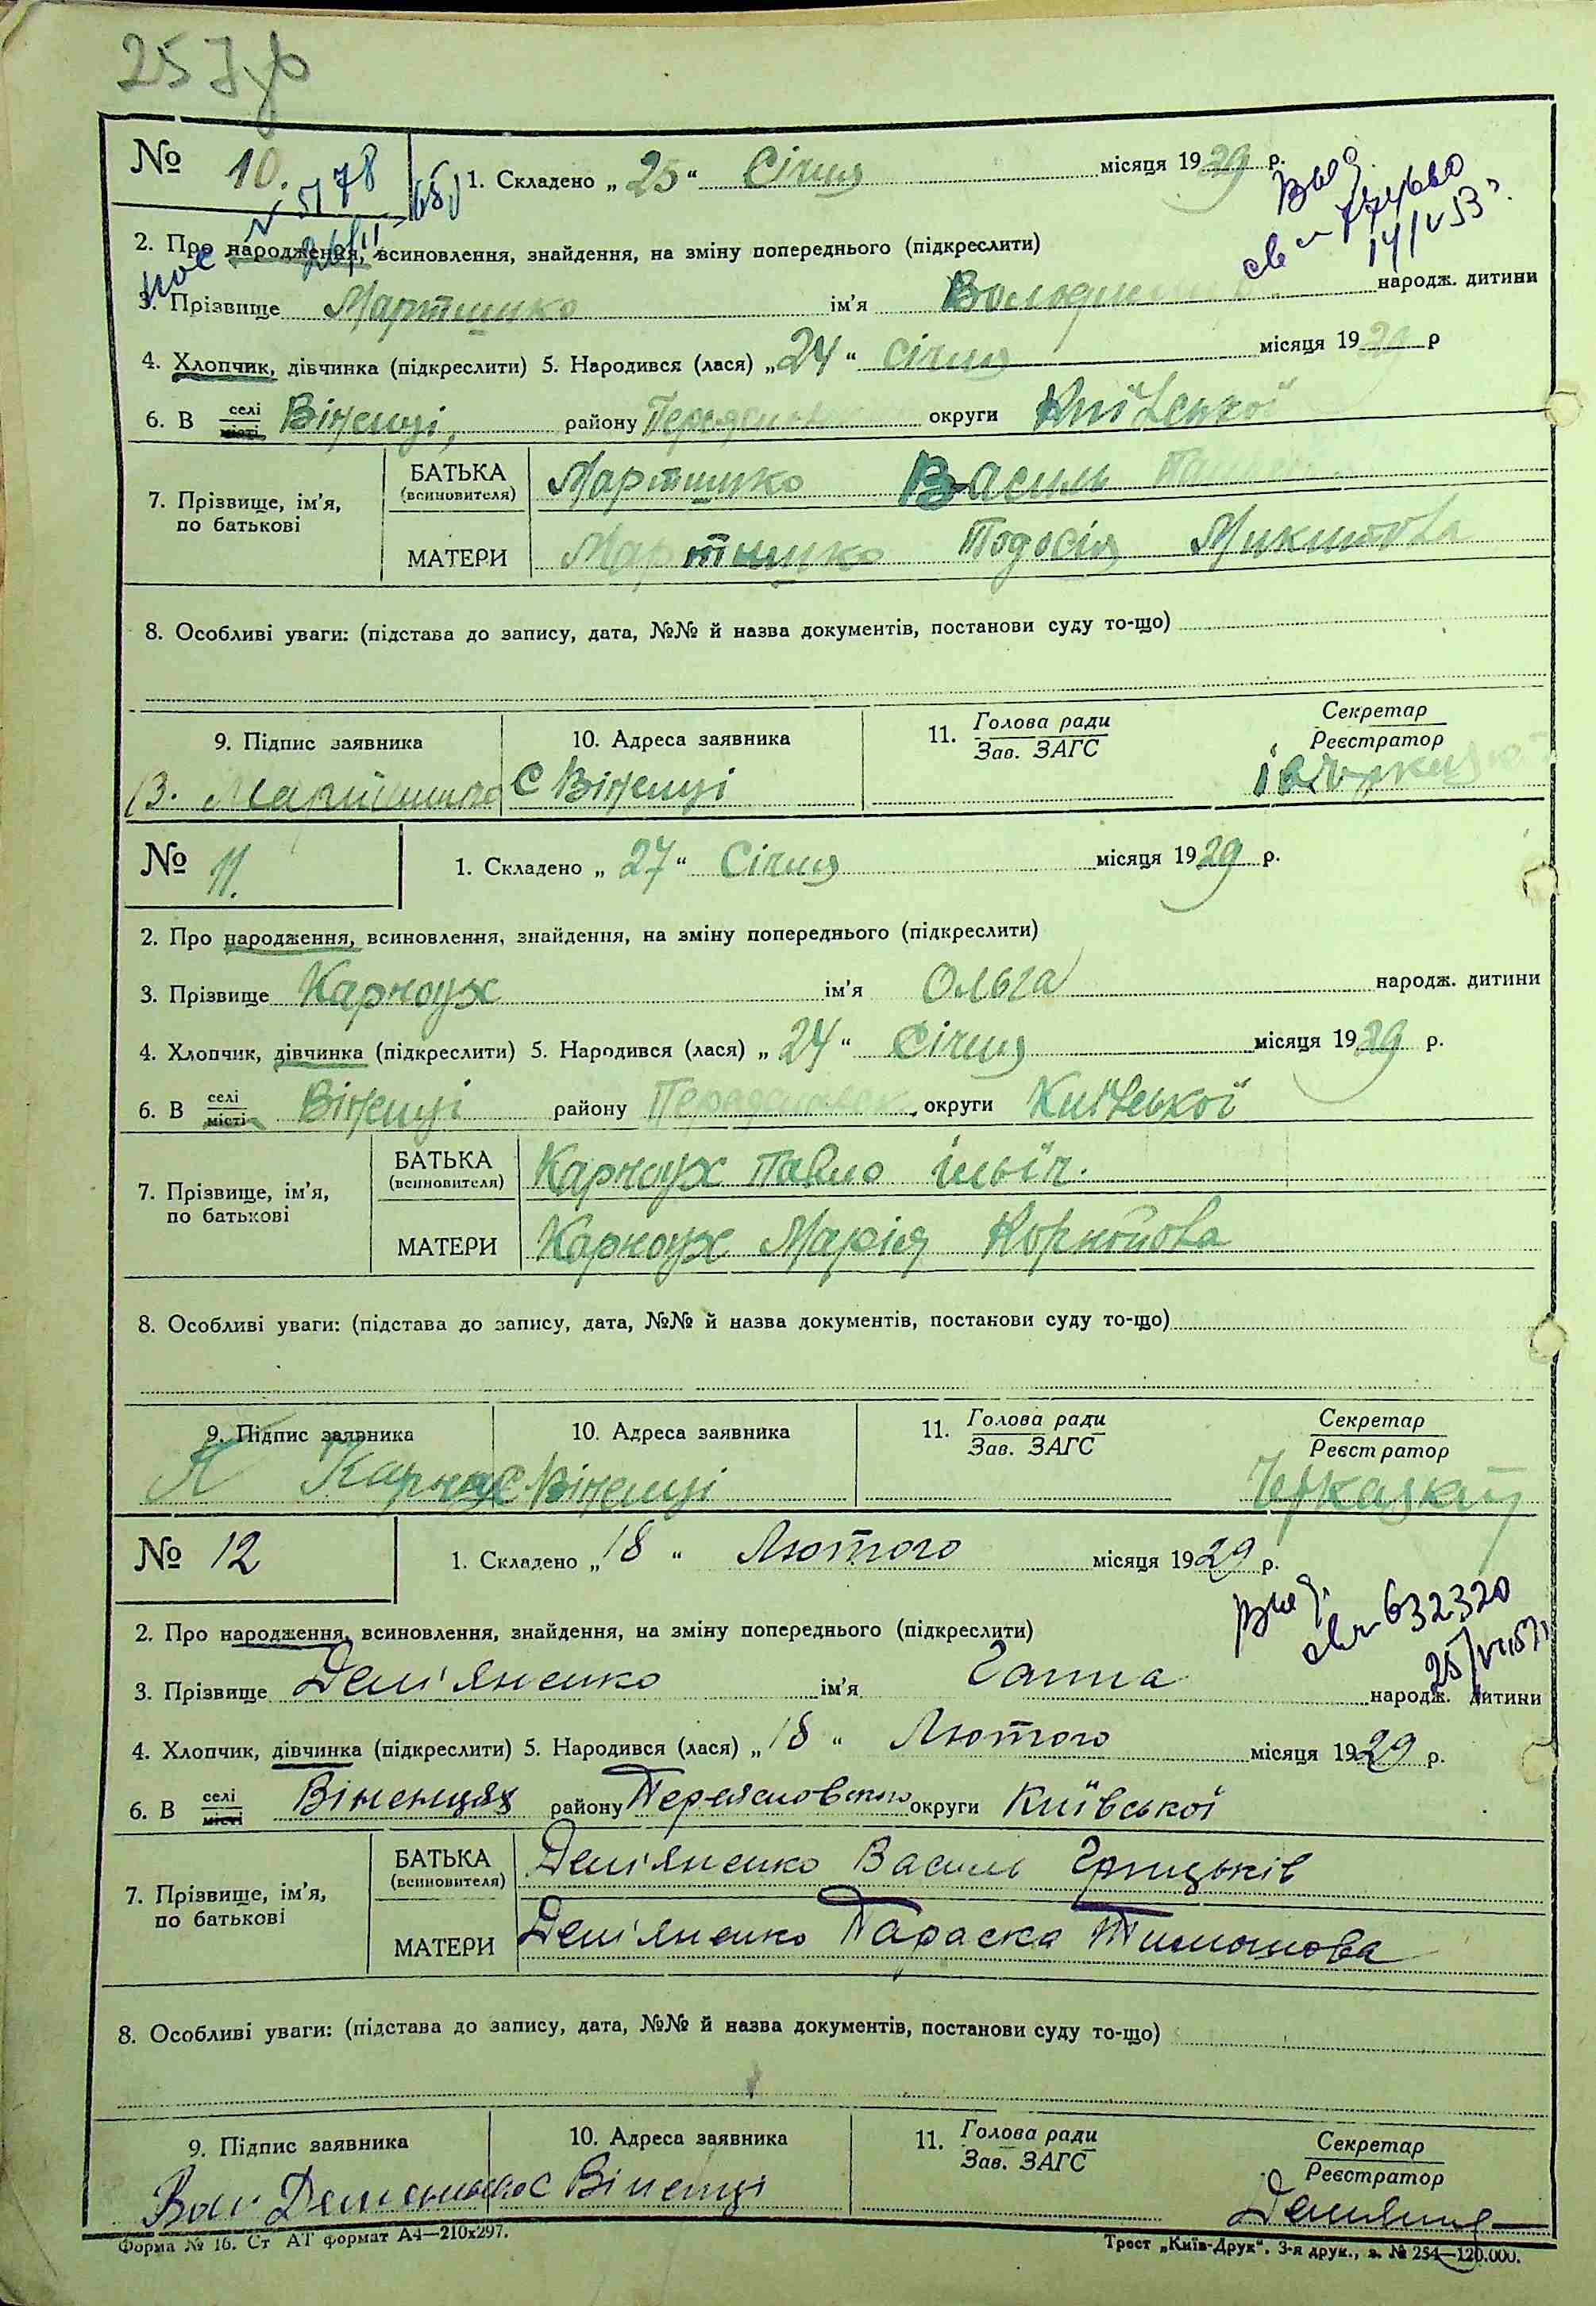 25
№ 10. 1. Складено „25“ Січня місяця 1929 р.
№ 5178
Выд.
14/V 53 г.
2. Про народження, всиновлення, знайдення, на зміну попереднього (підкреслити)
3. Прізвище Мартинко ім’я Володимир народж. дитини
4. Хлопчик, дівчинка (підкреслити) 5. Народився (лася) „24“ січня місяця 1929 р
6. В селі місті Віненці, району Переяславськ округи Київської
7. Прізвище, ім’я, по батькові
БАТЬКА (всиновителя) Мартинко Василь
МАТЕРИ Мартинко Тодосія Микитова
8. Особливі уваги: (підстава до запису, дата, №№ й назва документів, постанови суду то-що)
9. Підпис заявника 10. Адреса заявника 11. Голова ради Зав. ЗАГС Секретар Реєстратор
В. Мартинко с Віненці
№ 11. 1. Складено „27“ Січня місяця 1929 р.
2. Про народження, всиновлення, знайдення, на зміну попереднього (підкреслити)
3. Прізвище Карноух ім’я Ольга народж. дитини
4. Хлопчик, дівчинка (підкреслити) 5. Народився (лася) „24“ Січня місяця 1929 р.
6. В селі місті Віненці району Переяславськ округи Київської
7. Прізвище, ім’я, по батькові
БАТЬКА (всиновителя) Карноух Павло ільїч.
МАТЕРИ Карноух Марія Корнійова
8. Особливі уваги: (підстава до запису, дата, №№ й назва документів, постанови суду то-що)
9. Підпис заявника 10. Адреса заявника 11. Голова ради Зав. ЗАГС Секретар Реєстратор
П Карно с Віненці Черкаський
№ 12 1. Складено „18“ Лютого місяця 1929 р.
Выд.
св 632320
25/VII 57
2. Про народження, всиновлення, знайдення, на зміну попереднього (підкреслити)
3. Прізвище Дем'яненко ім’я Ганна народж. дитини
4. Хлопчик, дівчинка (підкреслити) 5. Народився (лася) „18“ Лютого місяця 1929 р.
6. В селі місті Віненцях району Переясловського округи Київської
7. Прізвище, ім’я, по батькові
БАТЬКА (всиновителя) Дем'яненко Василь Грицьків
МАТЕРИ Дем'яненко Параска Тимошова
8. Особливі уваги: (підстава до запису, дата, №№ й назва документів, постанови суду то-що)
9. Підпис заявника 10. Адреса заявника 11. Голова ради Зав. ЗАГС Секретар Реєстратор
с Віненці
Форма № 16. Ст АТ формат А4—210х297. Трест „Київ-Друк“. 3-я друк., з. № 254—120.000.